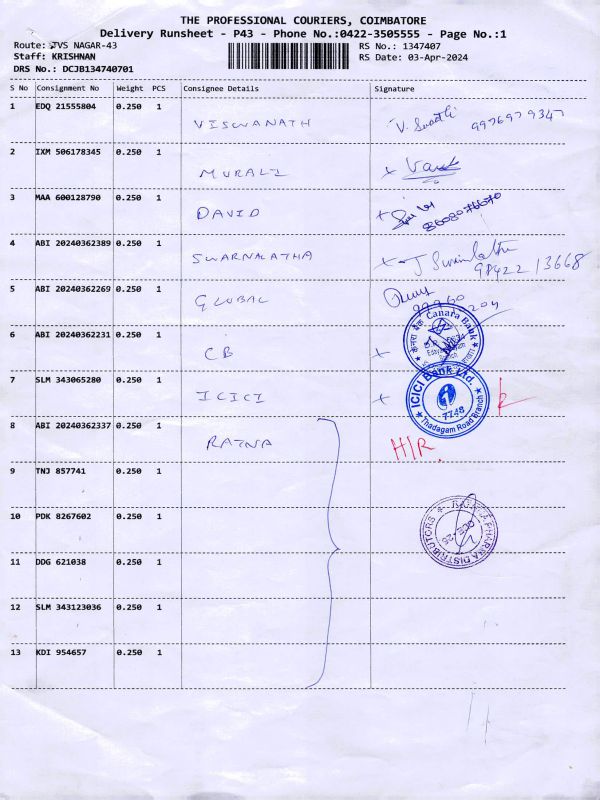 THE PROFESSIONAL COURIERS, COIMBATORE
Delivery Runsheet - P43 - Phone No.:0422-3505555 - Page No.:1
Route: TVS NAGAR-43
RS No.: 1347407
Staff: KRISHNAN
RS Date: 03-Apr-2024
DRS No.: DCJB134740701
S No Consignment No Weight PCS Consignee Details Signature
1 EDQ 21555804 0.250 1 VISWANATH V. Swathi 9976979347
2 IXM 506178345 0.250 1 MURALI x
3 MAA 600128790 0.250 1 DAVID x 8608076670
4 ABI 20240362389 0.250 1 SWARNALATHA x J Swarnalatha
9842213668
5 ABI 20240362269 0.250 1 GLOBAL
99960 204
6 ABI 20240362231 0.250 1 CB x केनरा बैंक Canara Bank
7 SLM 343065280 0.250 1 ICICI x ICICI Bank Ltd.
7748
Thadagam Road Branch
8 ABI 20240362337 0.250 1 RATNA H/R.
9 TNJ 857741 0.250 1
10 PDK 8267602 0.250 1 PHARMA DISTRIBUTORS
11 DDG 621038 0.250 1
12 SLM 343123036 0.250 1
13 KDI 954657 0.250 1